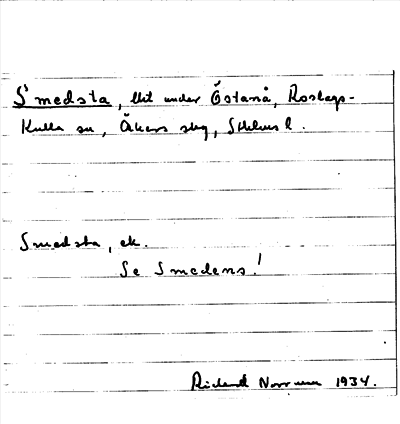 Smedsta, lht under Östanå, Roslags-
Kulla sn, Åkers slg, Sthlms l.
Smedsta, ek.
Se Smedens!
Rickard Norrman 1934.